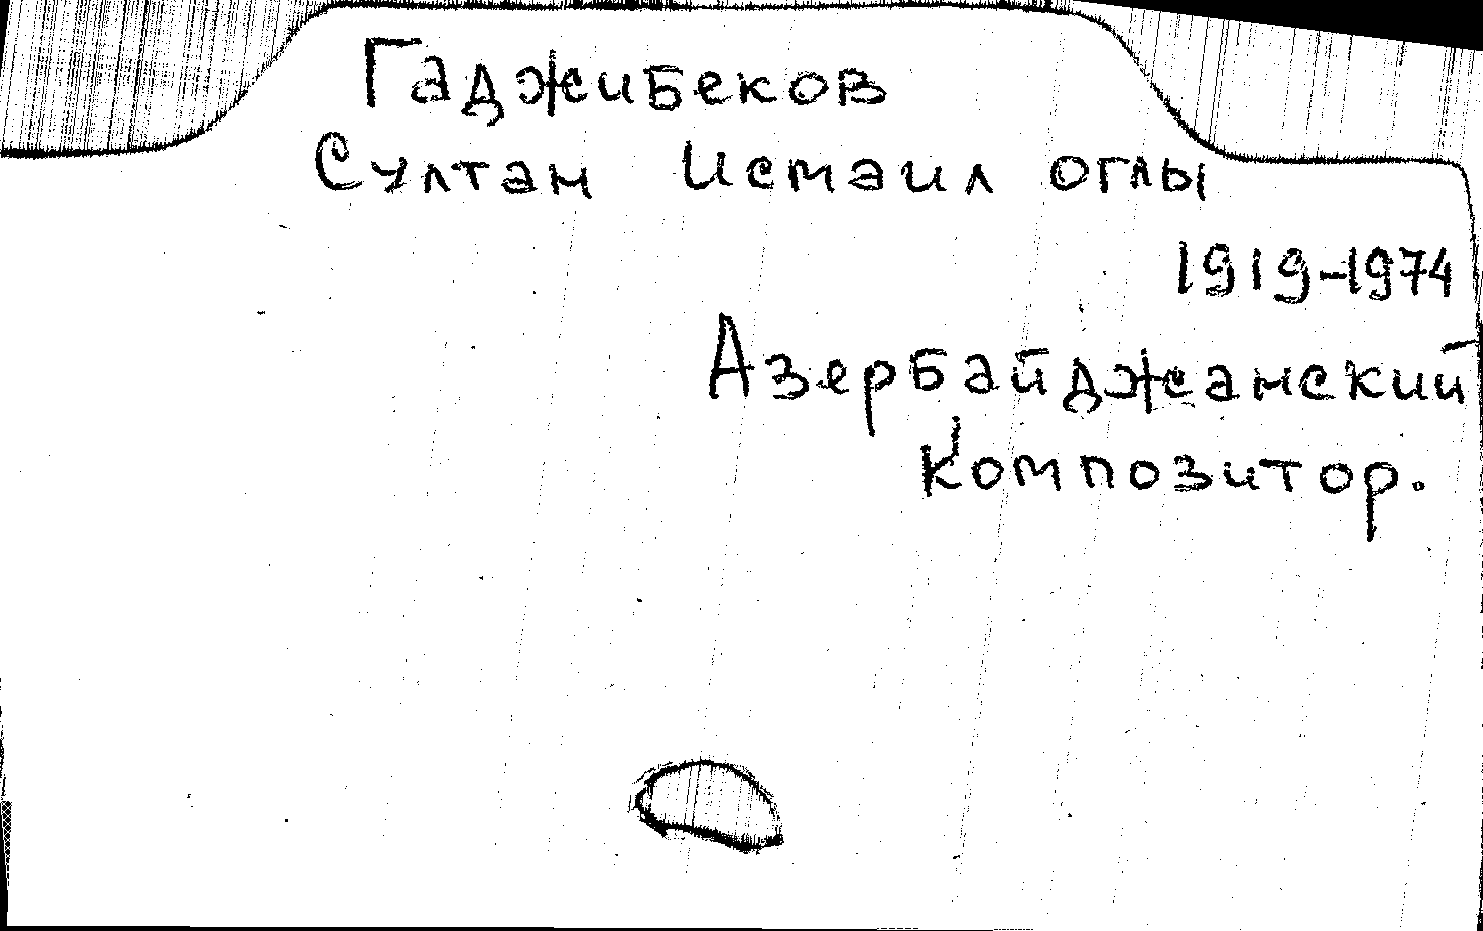 Гаджибеков
Султан Исмаил оглы
1919-1974
Азербайджанский
композитор.